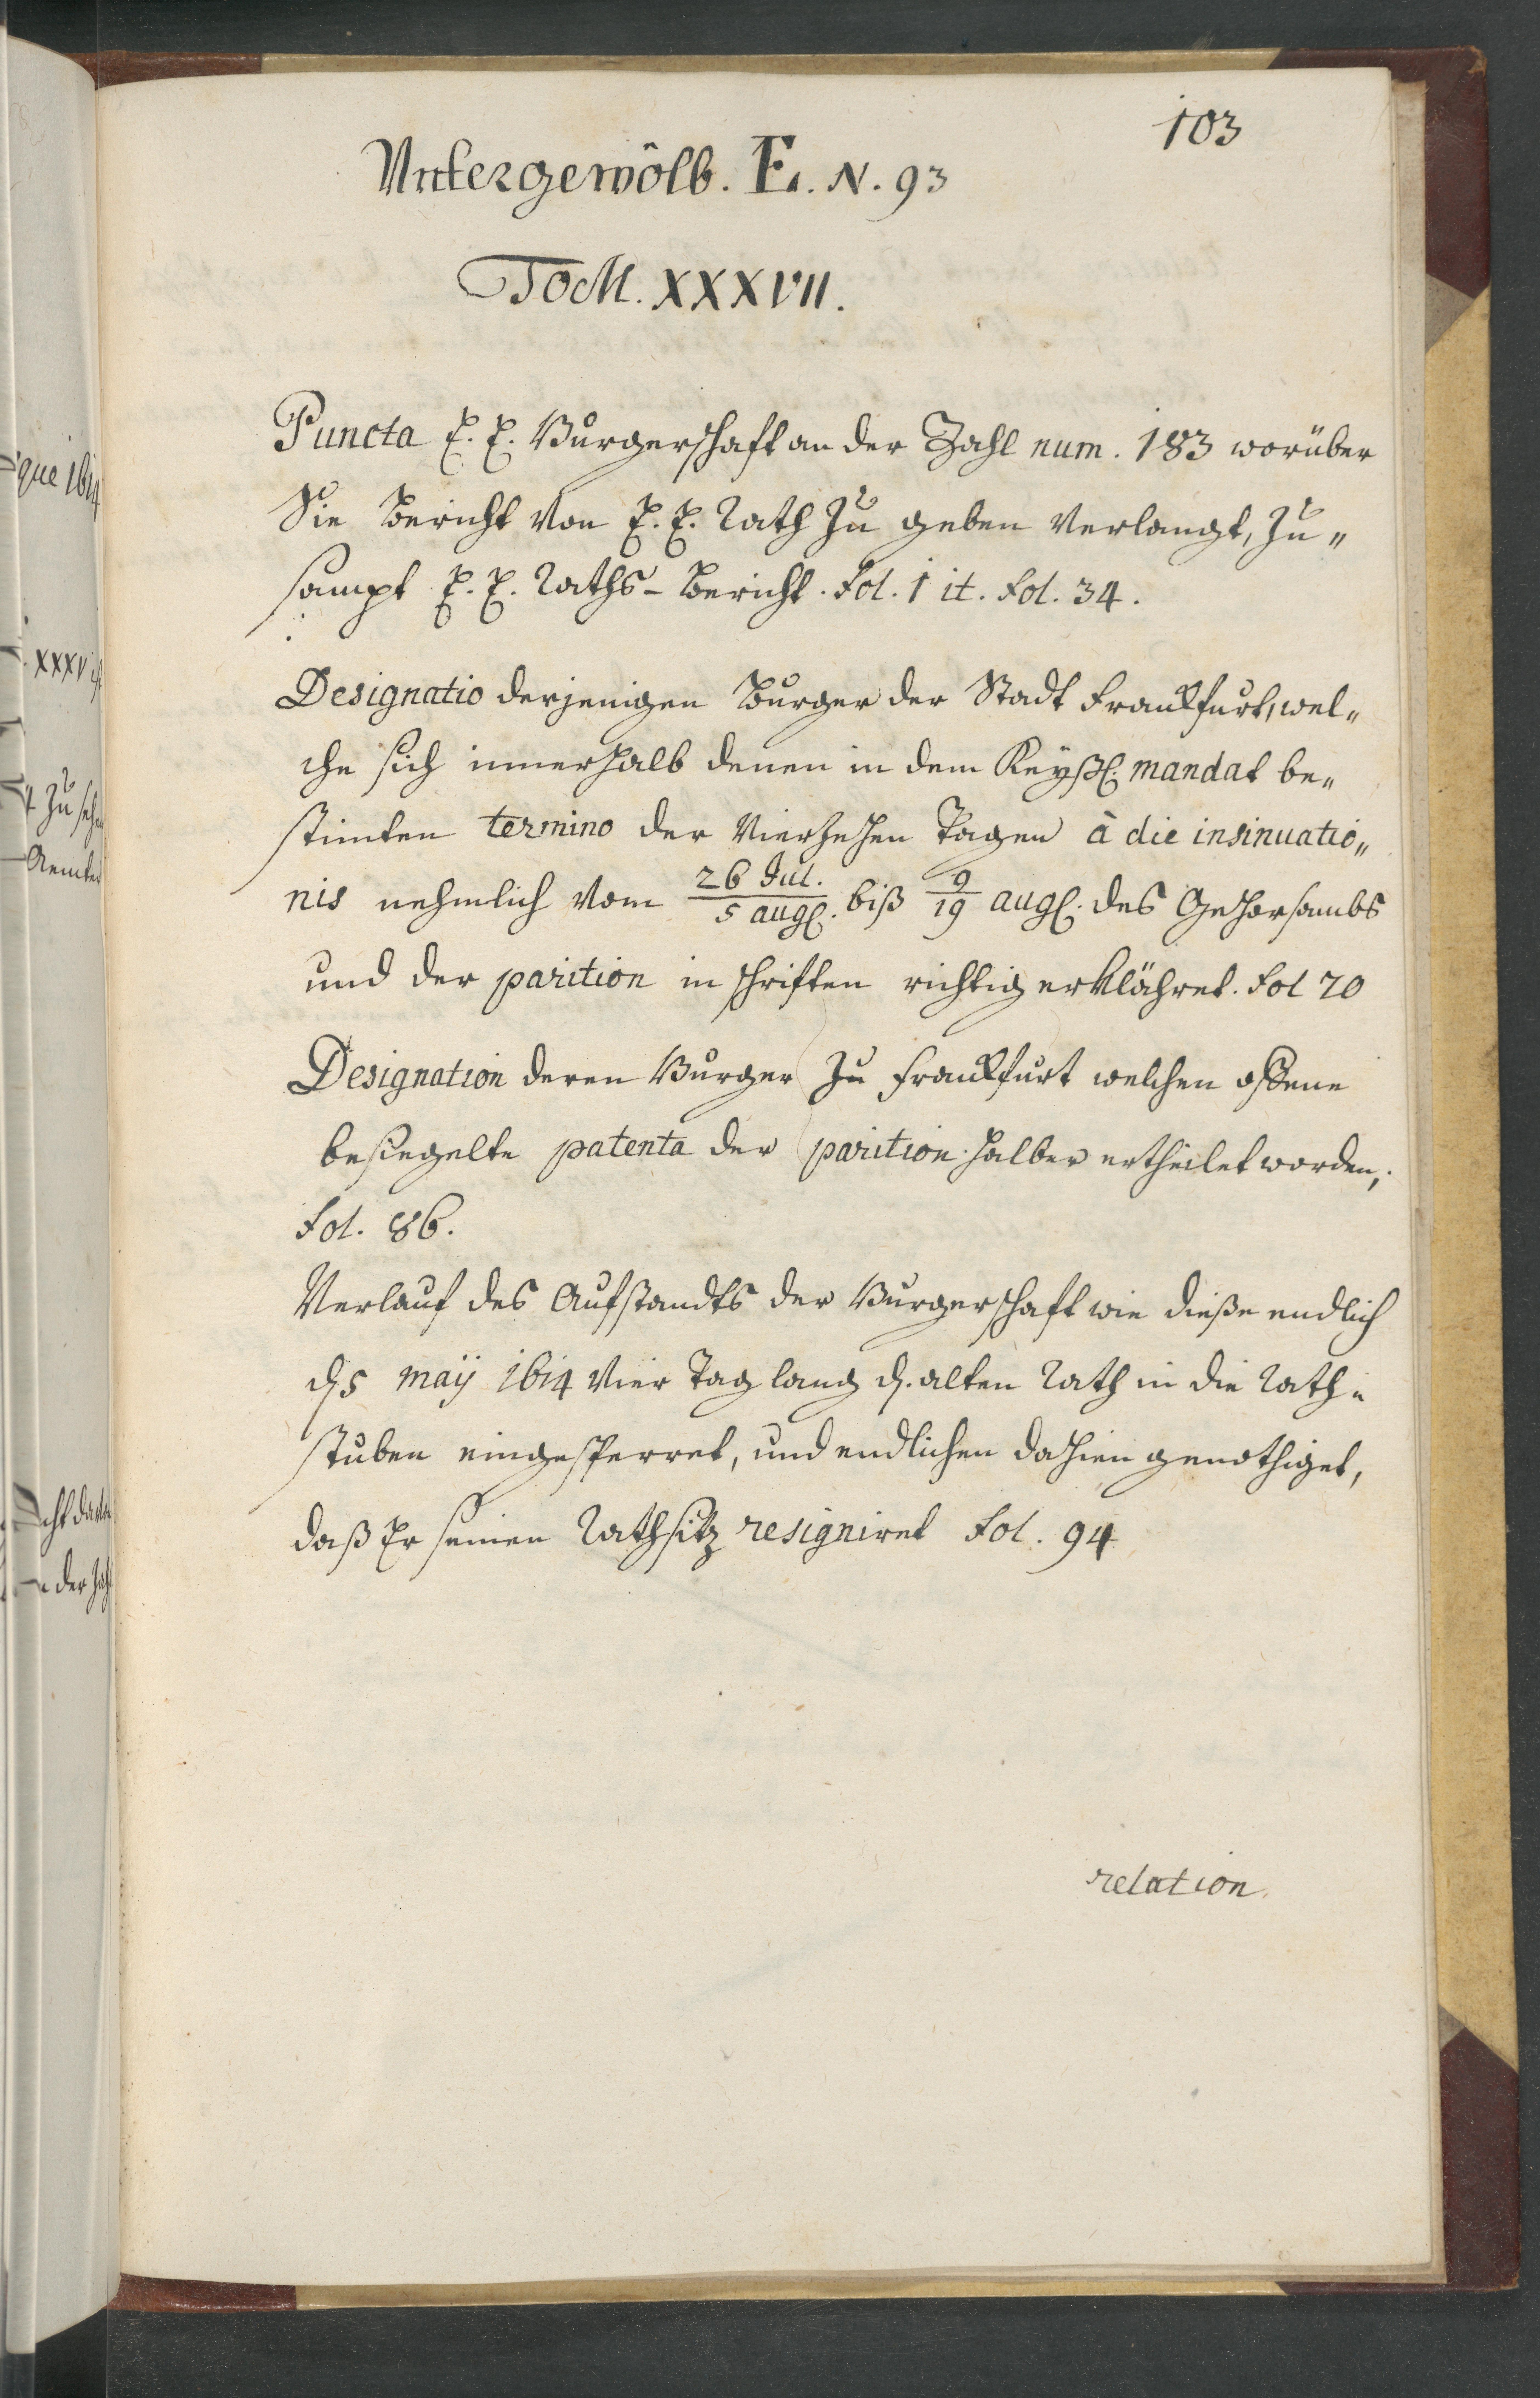 103
Untergewölb. E. N. 93
Tom. XXXVII.
Puncta E. E. Burgerschafft an der Zahl num. 183 worüber
Sie Bericht von E. E. Rath zu geben verlangt, zu„
sampt E. E. Raths-Bericht. fol. 1 it. fol. 34.
Designatio derjenigen Burger der Stadt Franckfurt, wel„
che sich innerhalb denen in dem Keyßl. mandat be„
stimten termino der vierzehen Tagen à die insinuatio„
nis nehmlich vom 26 Jul./5 aug. biß 9/19 aug. des Gehorsambs
und der parition in schrifften richtig erklähret. fol 70
Designation deren Burger zu Franckfurt welchen offene
besiegelte patenta der parition halber ertheilet worden,
fol. 86.
Verlauf des Aufstandts der Burgerschafft wie dieße endlich
d. 5 maij 1614 vier Tag lang d. alten Rath in die Rath„
stuben eingesperret, und endlichen dahien genöthiget,
daß Er seinen Rathsitz resigniret fol. 94
relation
que 1614
XXXV
zu seh
Aemter
der Zahl